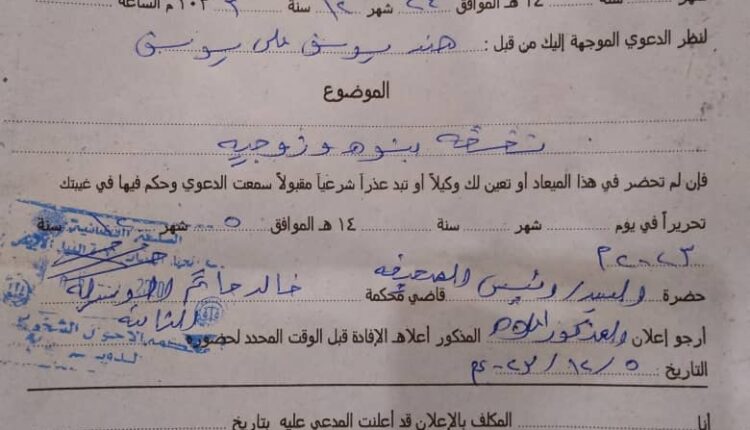 سنة ١٤ هـ الموافق ٢٤ شهر ١٢ سنة ٢٠٢٣ م الساعة
لنظر الدعوي الموجهة إليك من قبل : هند يوسف علي يوسف
الموضوع
نفقة بنوه وزوجيه
فإن لم تحضر في هذا الميعاد أو تعين لك وكيلاً أو تبد عذراً شرعياً مقبولاً سمعت الدعوي وحكم فيها في غيبتك
تحريراً في يوم شهر سنة ١٤ هـ الموافق ٥ شهر ١٢ سنة
٢٠٢٣م
السلطة القضائية
حضرة السيد/ رئيس المحكمة قاضي محكمة
أرجو إعلان المذكور أعلاهـ الإفادة قبل الوقت المحدد لحضوره
التاريخ : ٥ / ١٢ / ٢٠٢٣م
أنا المكلف بالإعلان قد أعلنت المدعي عليه بتاريخ